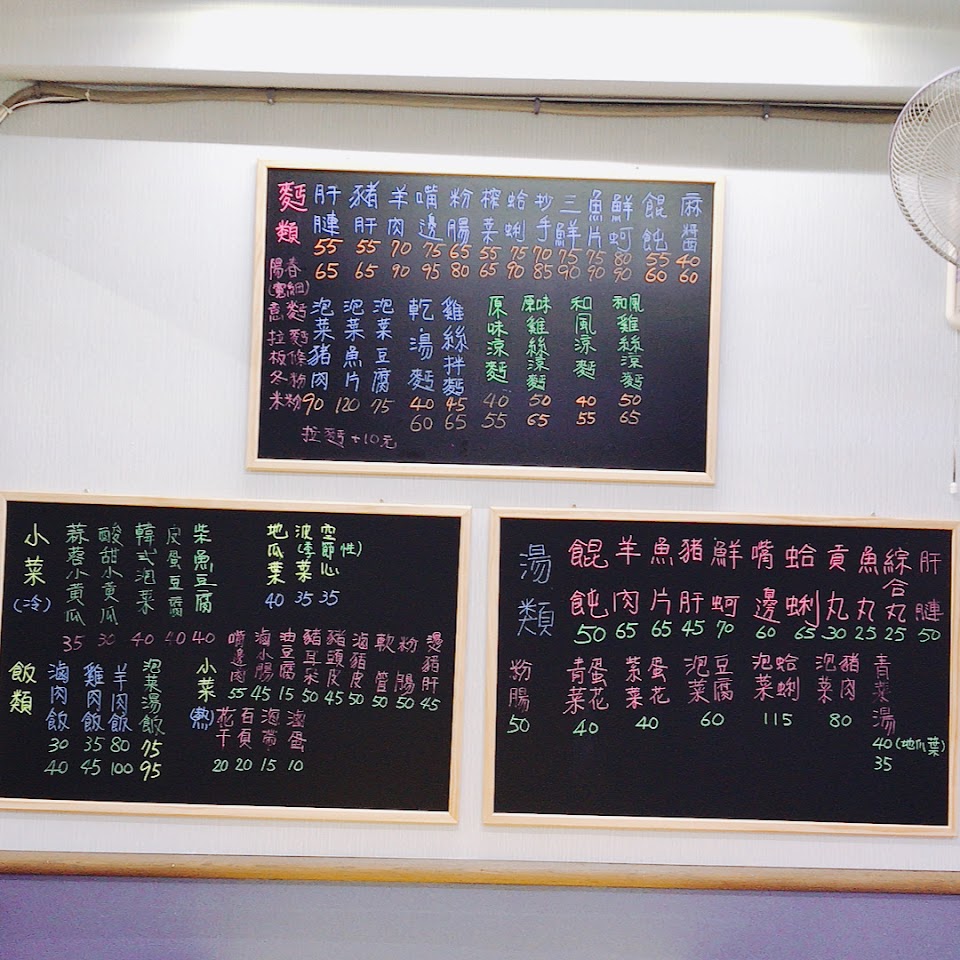 麵類
陽春
(寬細)
意麵
拉麵
板條
冬粉
米粉
肝膢 55 65
豬肝 55 65
羊肉 70 90
嘴邊 75 95
粉腸 65 80
榨菜 55 65
蛤蜊 75 90
抄手 70 85
三鮮 75 90
魚片 75 90
鮮蚵 80 90
餛飩 55 60
麻醬 40 60
泡菜豬肉 90
泡菜魚片 120
泡菜豆腐 75
乾湯麵 40 60
雞絲拌麵 45 65
原味涼麵 40 55
原味雞絲涼麵 50 65
和風涼麵 40 55
和風雞絲涼麵 50 65
拉麵+10元
小菜(冷)
蒜蓉小黃瓜 35
酸甜小黃瓜 30
韓式泡菜 40
皮蛋豆腐 40
柴魚豆腐 40
地瓜葉 40
波菜 35
空心 35
(季節性)
飯類
滷肉飯 30 40
雞肉飯 35 45
羊肉飯 80 100
泡菜湯飯 75 95
小菜(熱)
嘴邊肉 55
滷小腸 45
油豆腐 15
豬耳朵 50
豬頭皮 45
滷豬皮 50
軟管 50
粉腸 50
燙豬肝 45
花干 20
百頁 20
海帶 15
滷蛋 10
湯類
餛飩 50
羊肉 65
魚片 65
豬肝 45
鮮蚵 70
嘴邊 60
蛤蜊 65
貢丸 30
魚丸 25
綜合丸 25
肝膢 50
粉腸 50
青菜蛋花 40
紫菜蛋花 40
泡菜豆腐 60
泡菜蛤蜊 115
泡菜豬肉 80
青菜湯
40(地瓜葉)
35